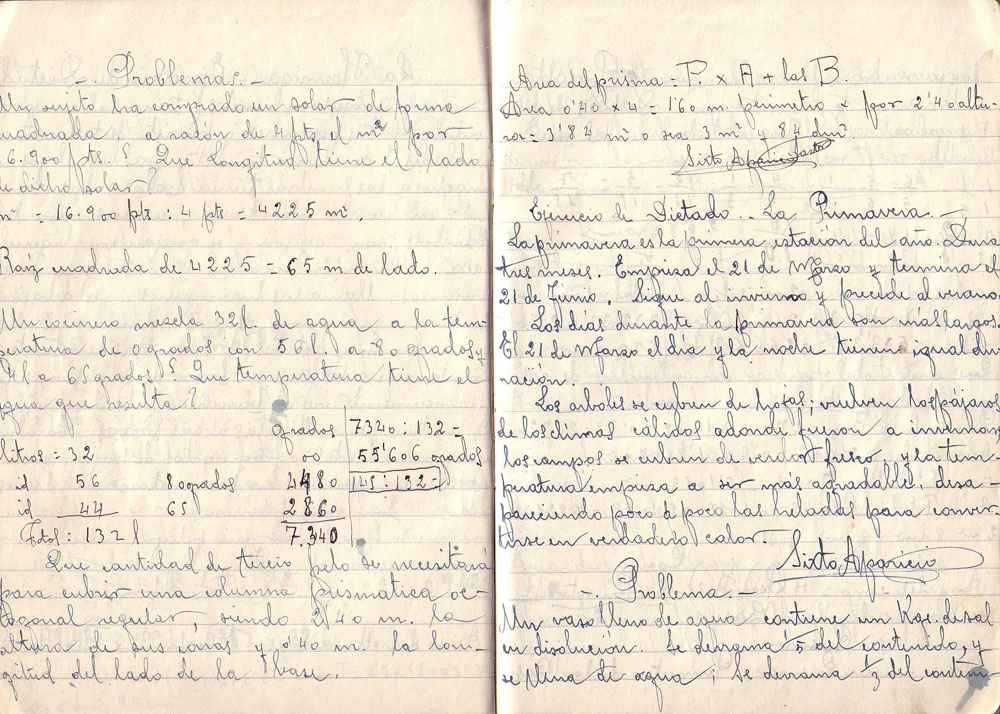 -. Probblemas. -
Un sujeto ha comprado un solar de forma
cuadrada a razón de 4 pts el m² por
16.900 pts. ¿ Que longitud tiene el lado
de dicho solar?
m² = 16.900 pts : 4 pts = 4225 m².
Raíz cuadrada de 4225 = 65 m. de lado.
Un cocinero mezcla 32 l. de agua a la tem-
peratura de 0 grados con 56 l. a 80 grados y
44 l a 65 grados. ¿ Que temperatura tiene el
agua que resulta?
grados 7340 : 132 =
litros = 32 00 55'606 grados
id 56 80 grados 4480 145 : 132 =
id 44 65 2860
Total : 132 l 7.340
Que cantidad de tercio pelo se necesitará
para cubrir una columna prismática oc-
togonal regular, siendo 2'40 m. la
altura de sus caras y 0'40 m. la lon-
gitud del lado de la base.
Area del prisma = P. x A + las B.
Area 0'40 x 4 = 1'60 m. perimetro x por 2'40 altu-
ra = 3'84 m² o sea 3 m² y 84 dm².
Sixto Aparicio
Ejercicio de Dictado.. La Primavera.-
La primavera es la primera estación del año. Dura
tres meses. Empieza el 21 de Marzo y termina el
21 de Junio. Sigue al invierno y precede al verano
Los días durante la primavera son más largos.
El 21 de Marzo el día y la noche tienen igual du-
ración.
Los arboles se cubren de hojas; vuelven los pájaros
de los climas cálidos adonde fueron a invernar
los campos se cubren de verdor fresco, y la tem-
peratura empieza a ser más agradable, desa-
pareciendo poco a poco las heladas para conver-
tirse en verdadero calor.
Sixto Aparicio
-. Problema. -
Un vaso lleno de agua contiene un Kgr. de sal
en disolución. Se derrama 1/5 del contenido, y
se llena de agua ; Se derrama 1/3 del conteni-